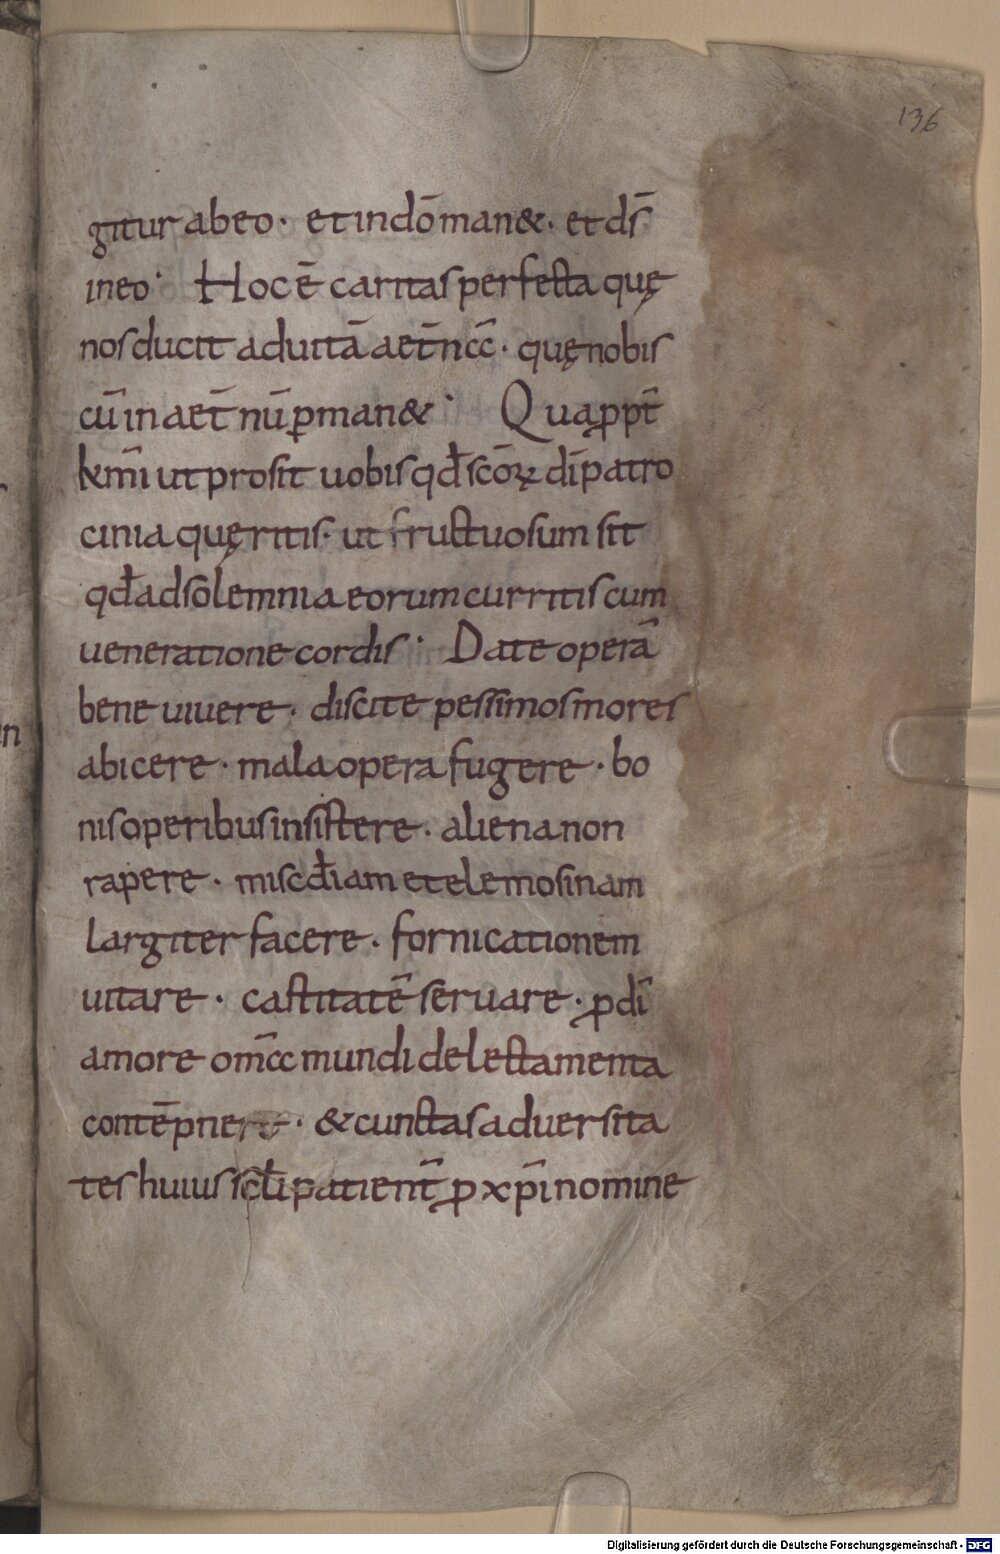 136
gitur ab eo · et in dō man& · et d̄s
in eo · Hoc ē caritas perfecta quę
nos ducit ad uitā aet̄ncc̄ · quę nobis
cū in aet̄nū ꝑman& · Quaꝓpt̄
kmī ut prosit uobis qd̄ scōꝝ dī patro
cinia quęritis · ut fructuosum sit
qd̄ ad solemnia eorum curritis cum
ueneratione cordis · Date operā
bene uiuere · discite pessimos mores
abicere · mala opera fugere · bo
nis operibus insistere · aliena non
rapere · miscd̄iam et elemosinam
largiter facere · fornicationem
uitare · castitatē seruare · ꝓ dī
amore om̄cc mundi delectamenta
contēpnere · & cunctas aduersita
tes huius scl̄i patient̄ ꝓ xp̄i nomine
Digitalisierung gefördert durch die Deutsche Forschungsgemeinschaft - DFG